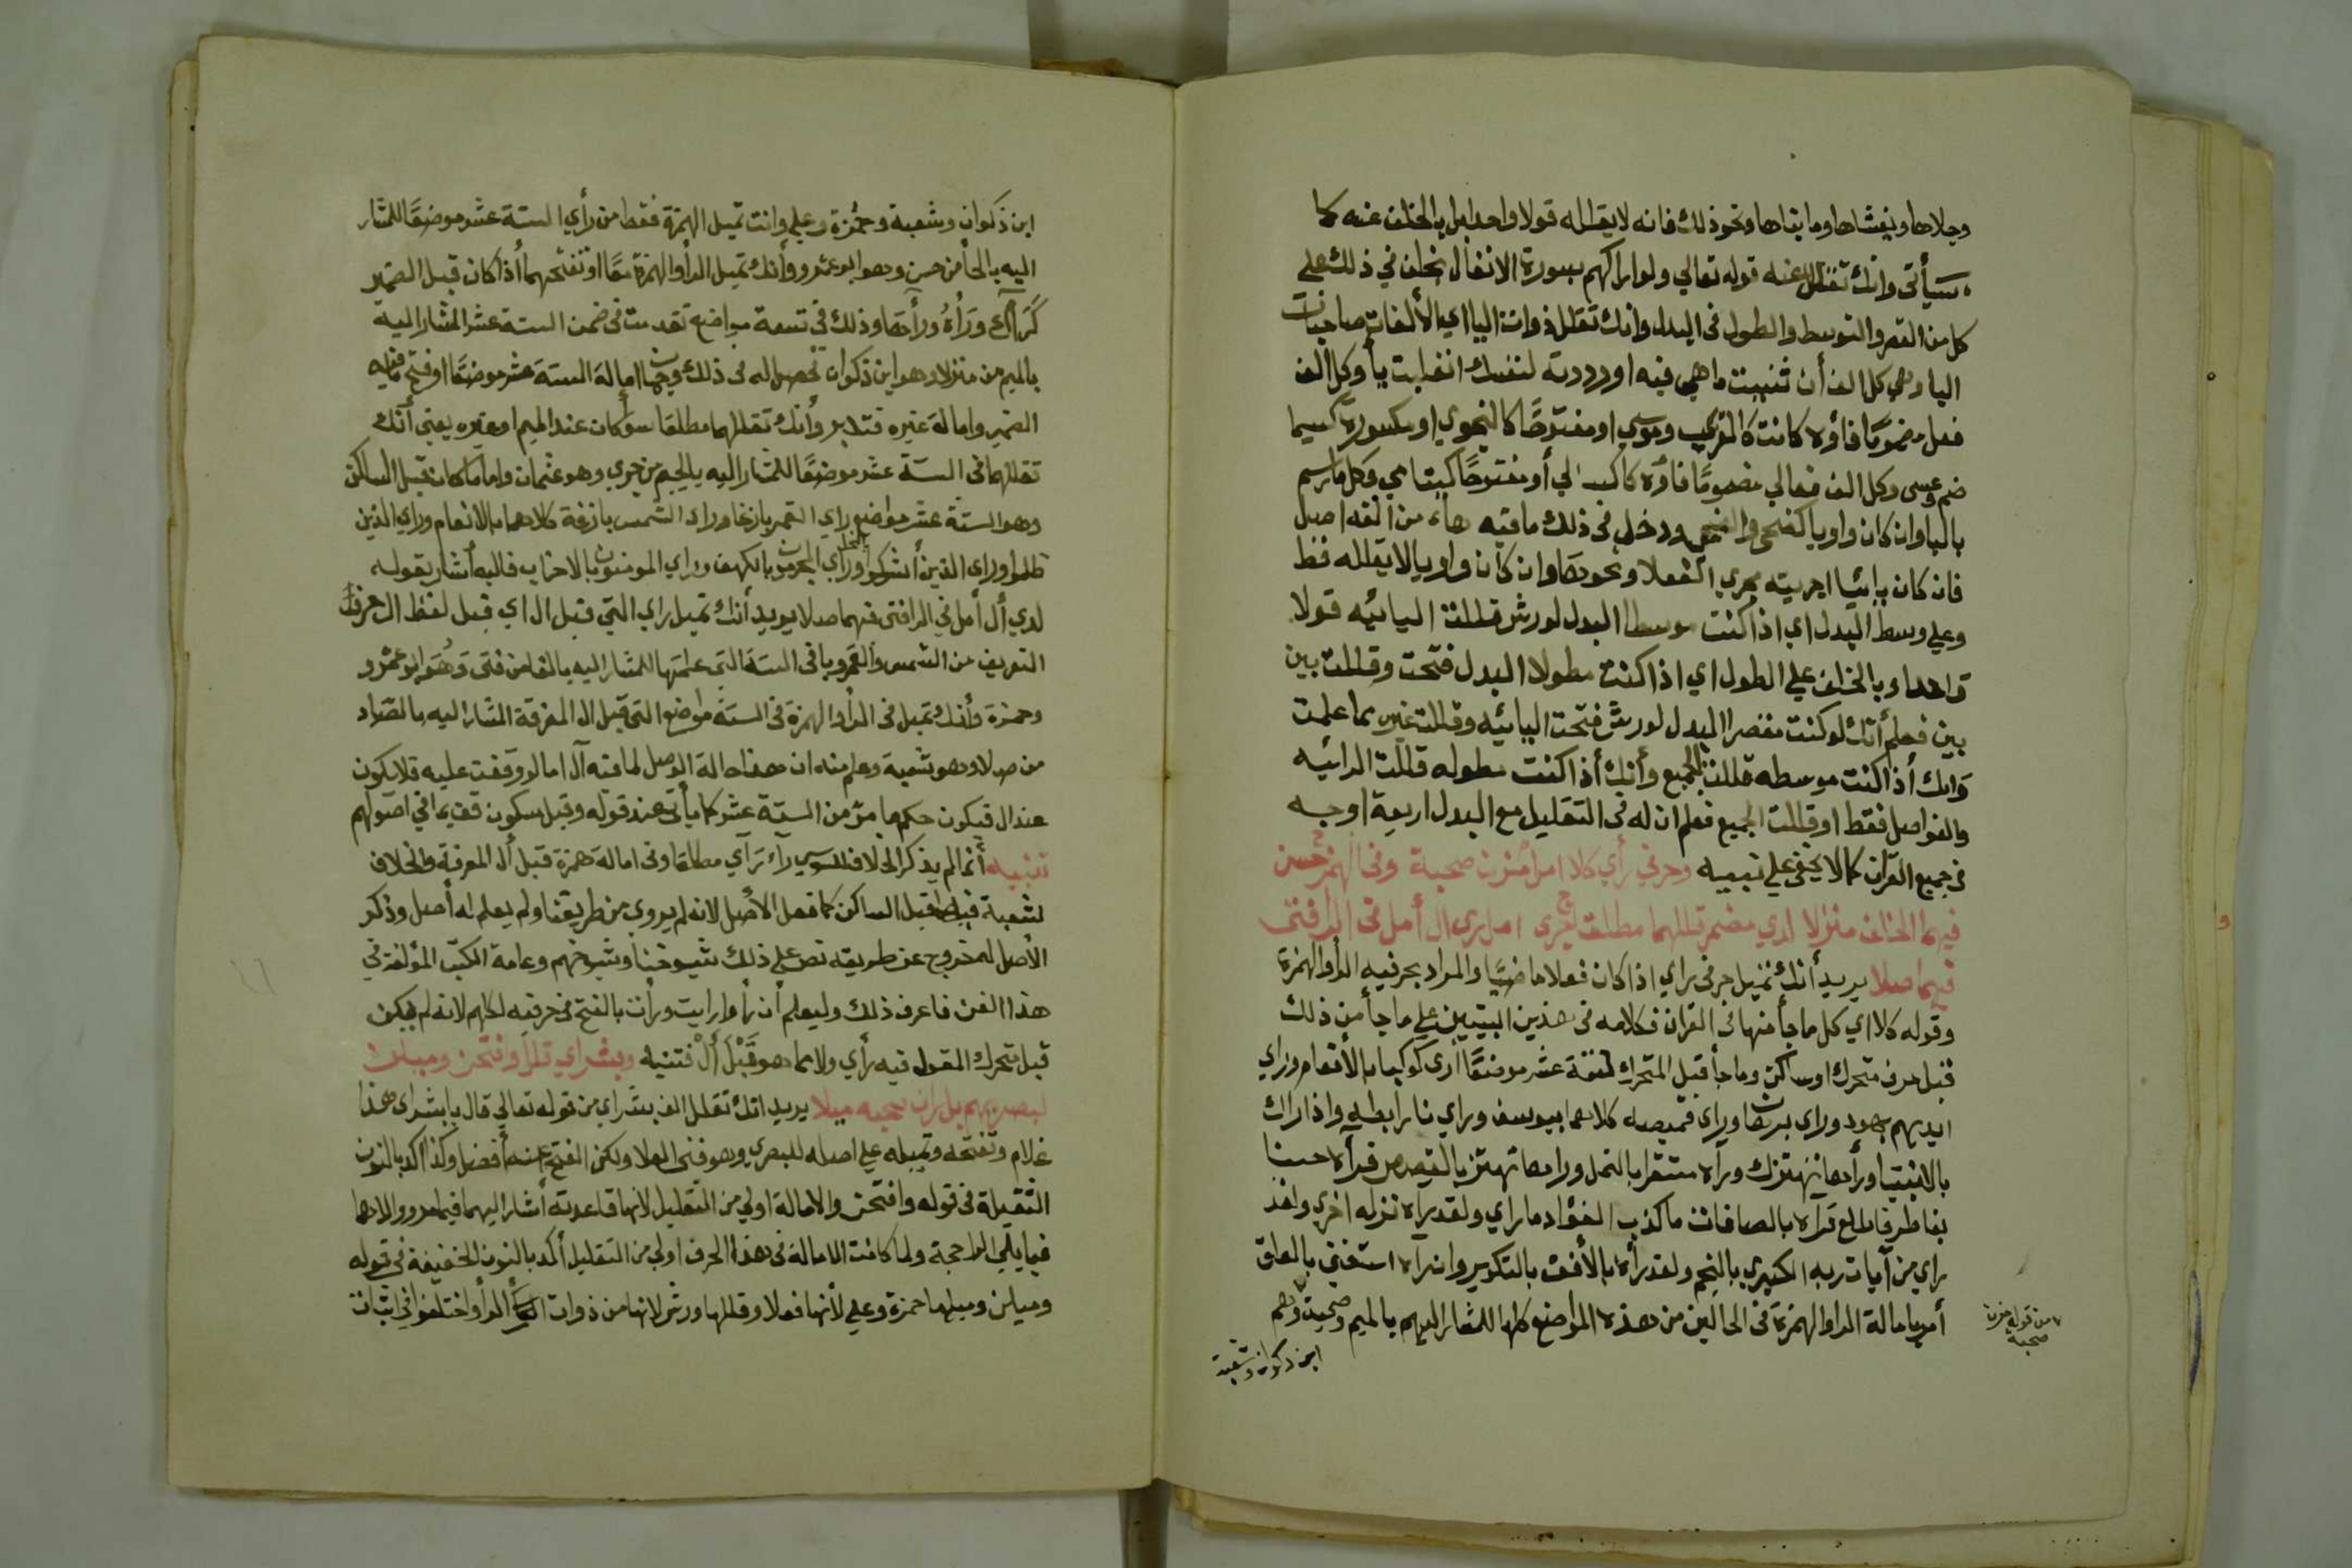 وجلاها ويغشاها وما بناها ونحو ذلك فانه لا يقلله قولا واحدا بل بالخلف عنه كما
سيأتي وانك تقلل عنه قوله تعالي ولو اراكهم بسورة الانفال بخلف في ذلك علي
كل من القصر والتوسط والطول في البدل وانك تقلل ذوات اليا اي الألفات صاحبات
اليا وهي كل الف أن ثنيت ما هي فيه او رددته لنفسك انقلبت يأ وكل الف
فعلي مضموما فاؤه كانت كالقربي وموسي او مفتوحًا كالنجوي او مكسورة كسيما
ضم وعيسى وكل الف فعالي مضمومًا فاؤه كاكسالي أو مفتوحًا كيتامي وكل ما رسم
باليا وان كان واويا كضحي والضحى ودخل في ذلك ما فيه هاء من الفه اصل
فان كان يائيا اجريته مجري الفعلا ونحوها وان كان واويا لا يقلله فقط
وعلي وسط البدل اي اذا كنت موسطا البدل لورش قللت اليائيه قولا
واحدا وبالخلف علي الطول اي اذا كنت مطولا البدل فتحت وقللت بين
بين فعلم أنك لو كنت مقصرا البدل لورش فتحت اليائيه وقللت غيرها مما علمت
وانك أذا كنت موسطه قللت الجميع وأنك أذا كنت مطوله قللت الرائيه
والفواصل فقط او قللت الجميع فعلم ان له في التقليل مع البدل اربعة اوجه
في جميع القرآن كما لا يخفى علي نبيه وحرفي رأي كلا امل مزن صحبة وفي الهمز حسن
فيهما الخلف منزلا لدي مضمر قللهما مطلقا جرى لدى ال أمل في الرا فتى
فيهما صلا يريد أنك تميل حرفي راي اذا كان فعلا ماضيًا والمراد بحرفيه الرأ والهمزة
وقوله كلا اي كل ما جأ منها في القران فكلامه في هذين البيتين علي ما جأ من ذلك
قبل حرف متحرك او ساكن وما جأ قبل المتحرك ستة عشر موضعًا رأى كوكبا بالأنعام وراي
ايديهم بهود وراى برهان وراى قميصه كلاهما بيوسف وراي نارا بطه واذا راك
بالانبيا ورأها تهتزك ورآه مستقرا بالنمل وراها تهتز بالقصص فرآه حسنا
بفاطر فاطلع فرآه بالصافات ما كذب الفؤاد ما راي ولقد رآه نزله اخري ولقد
راي من آيات ربه الكبري بالنجم ولقد رأه بالأفق بالتكوير وان رآه استغني بالعلق
أمر بامالة الرا والهمزة في الحالين من هذه المواضع كلها للمشار اليهم بالميم وصحبة وهم
من قوله مزن
صحبة
ابن ذكوان وشعبة
ابن ذكوان وشعبة وحمزة وعلي وانت تميل الهمزة فقط من رأي الستة عشر موضعًا للمشار
اليه بالحأ من حسن وهو ابو عمرو وأنك تميل الرأ والهمزة معًا او تفتحهما أذا كان قبل الضمير
كرآك ورآه ورأها وذلك في تسعة مواضع تقدمت في ضمن الستة عشر المشار اليه
بالميم من منزلا وهو ابن ذكوان تحصل له في ذلك وجهان امالة الستة عشر موضعًا او فتح ما قبله
الضمير وامالة غيره فتدبر وأنك تقللهما مطلقا سوأ كان عند الميم او غيره يعني أنك
تقللهما في الستة عشر موضعًا للمشار اليه بالجيم من جري وهو عثمان واما ما كان قبل الساكن
وهو الستة عشر مواضع راي القمر بازغا وراى الشمس بازغة كلاهما بالانعام وراي الذين
ظلموا وراى الذين أشركوا النحل وراي المجرمون بالكهف وراي المومنون بالاحزاب فاليه أشار بقوله
لدي أل أمل في الرا فتى فيهما صلا يريد أنك تميل راي التي قبل ال اي قبل لفظ ال حرف
التعريف من الشمس والقمر وباقي الستة التي علمتها للمشار اليه بالفا من فتى وهو ابو عمرو
وحمزة وأنك تميل في الرأ والهمزة في الستة مواضع التي قبل ال المعرفة المشار اليه بالصاد
من صلا وهو شعبة وعلم منه ان هذا حالة الوصل لما فيه آل اما لو وقفت عليه فلا يكون
عند ال فيكون حكمها مر من الستة عشر كما يأتي عند قوله وقبل سكون قف بما في اصولهم
تنبيه أنما لم يذكر الخلاف للسوسي راء رأي مطلقا وفي امالة همزة قبل أل المعرفة والخلاف
لشعبة فيها قبل الساكن كما فعل الأصل لانه لم يروي من طريقنا ولم يعلم له أصل وذكر
الأصل له خروج عن طريقه نص علي ذلك شيوخنا وشيوخهم وعامة الكتب المؤلفة في
هذا الفن فاعرف ذلك وليعلم أن رأوا رايت ورأت بالفتح في حرفيه لكلهم لانه لم يكن
قبل متحرك المقول فيه رأي ولا مما هو قَبْلَ أَلْ فتنبه وبشراي قللا وافتحن وميلن
لبصريهم بل ران صحبه ميلا يريد انك تقلل الف بشراي من قوله تعالي قال يا بشراى هذا
غلام وتفتحه وتميله علي اصله للبصري وهو فتى العلا ولكن الفتح عنه أفضل وكذا اكد بالنون
الثقيلة في قوله وافتحن والامالة اولي من التقليل لانها قاعدته أشار اليهما فيما هو والاها
فيما يلي الراجحة ولما كانت الامالة في هذا الحرف اولى من التقليل أكد بالنون الخفيفة في قوله
وميلن وميلها حمزة وعلي لأنها فعلا وقللها ورش لانها من ذوات الرأ واختلفوا في اثبات